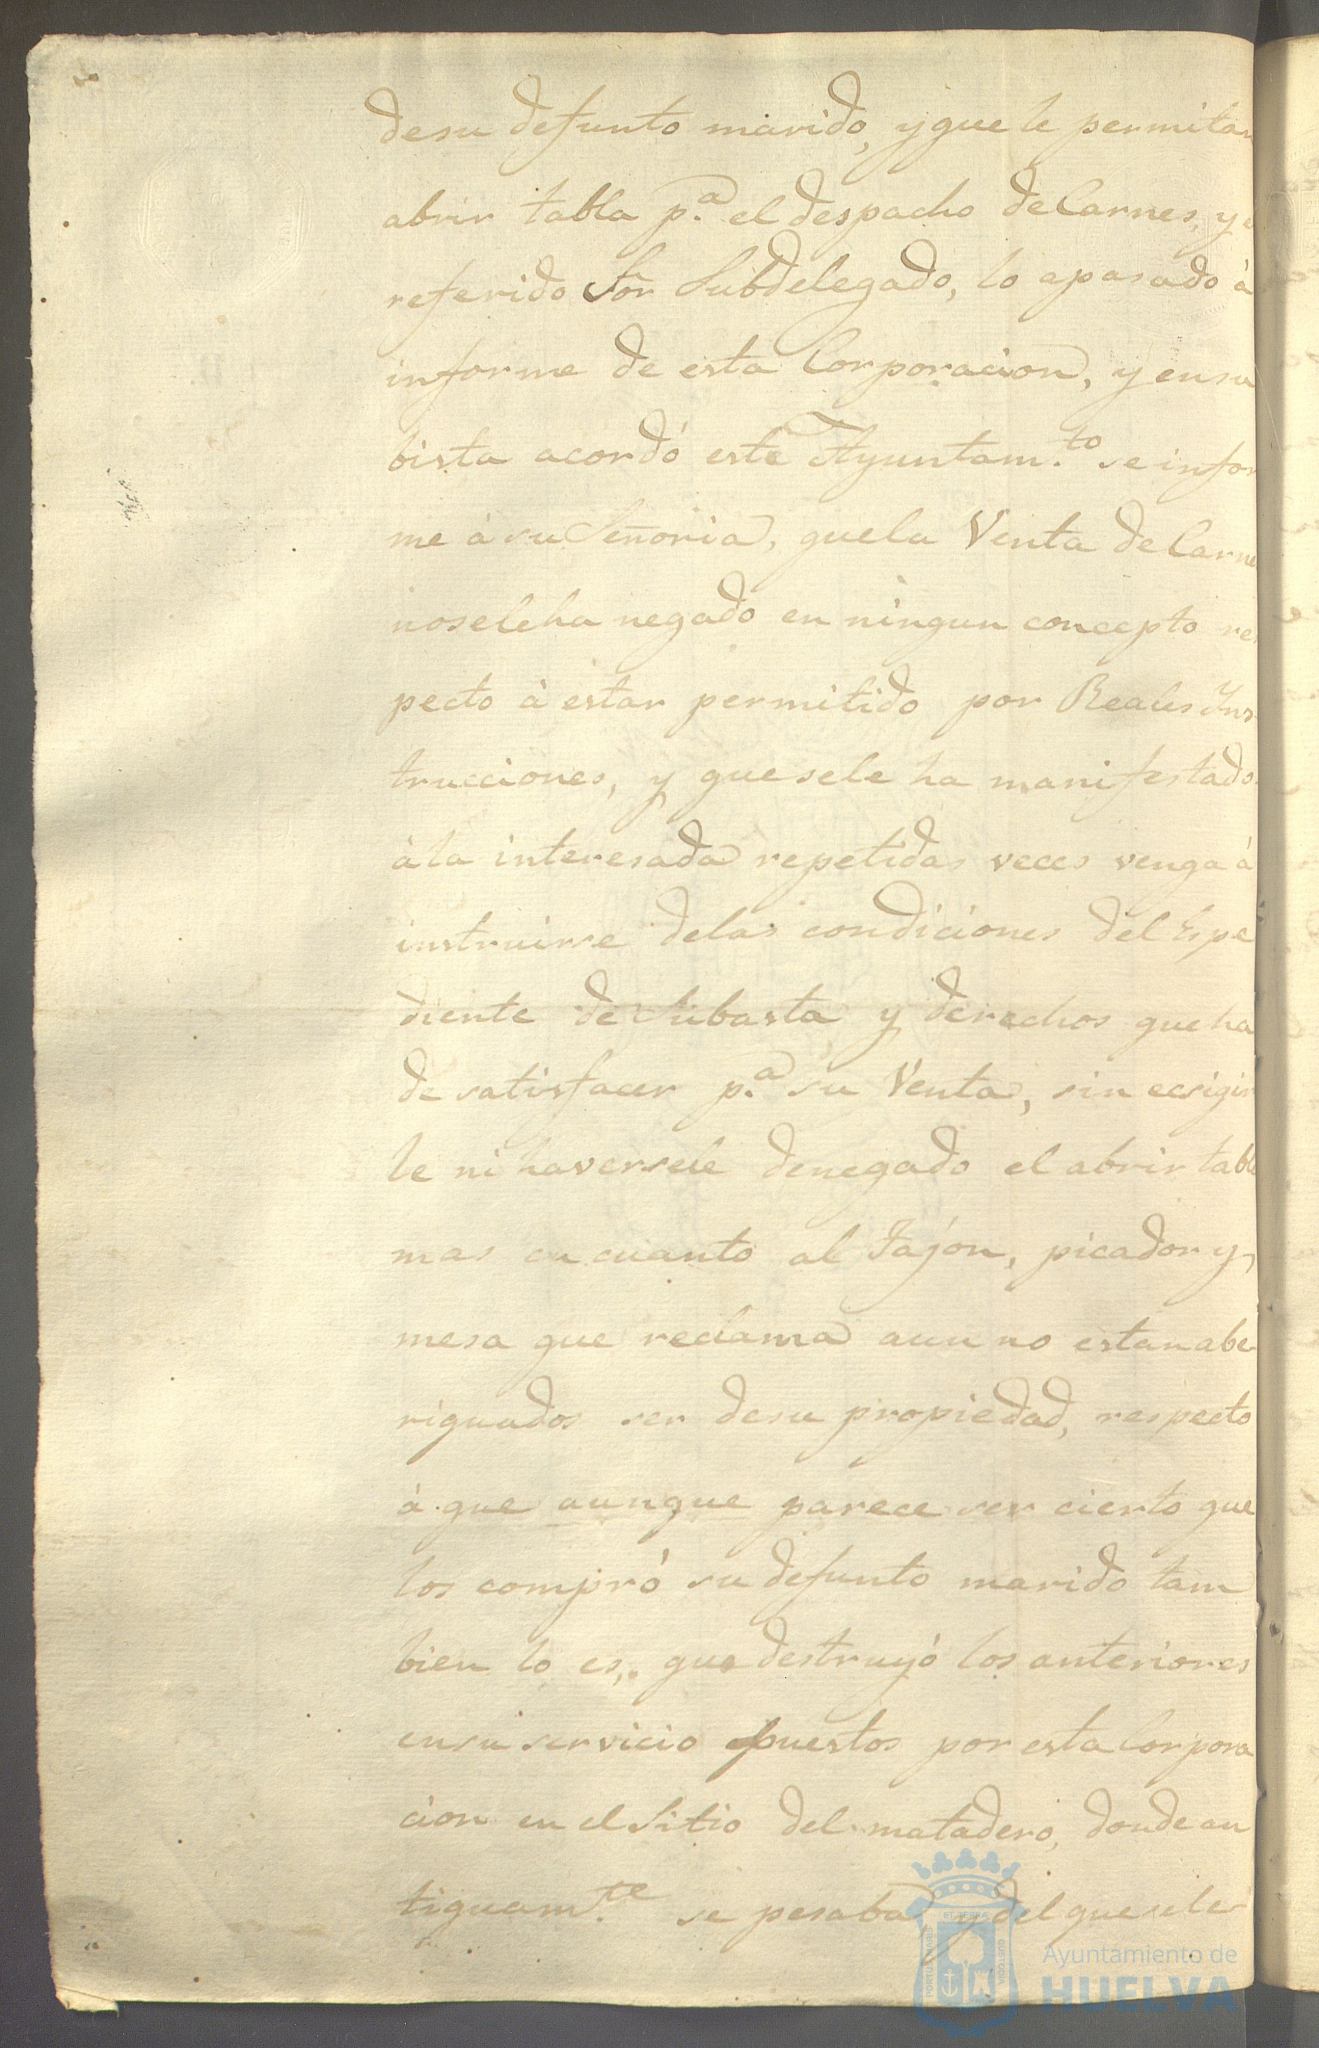 desu defunto marido, y que le permitan
abrir tabla p.ª el despacho de Carnes, y el
referido Sõr Subdelegado, lo apasado à
informe de esta Corporacion, y ensu
bista acordó este Ayuntam.to se infor
me à su Señoria, quela Venta de Carne
noseleha negado en ningun concepto res
pecto à estar permitido por Reales Ins
trucciones, y quesele ha manifestado
àla interesada repetidas veces venga à
instruirse delas condiciones del Espe
diente de Subasta y derechos queha
de satisfacer p.ª su Venta, sin ecsigir
le ni haversele denegado el abrir tabla
mas en cuanto al Tajón, picador y
mesa que reclama aun no estan abe
riguados ser desu propiedad, respecto
à que aunque parece ser cierto que
los compró su defunto marido tam
bien lo es, que destruyó los anteriores
ensu servicio puestos por esta Corpora
cion en el Sitio del matadero, donde an
tiguam.te se pesaba y del que sele
Ayuntamiento de
HUELVA